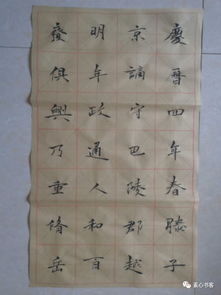 慶曆四年春滕子
京謫守巴陵郡越
明年政通人和百
廢俱興乃重脩岳
素心书客